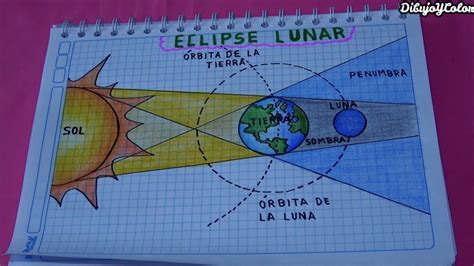 DibujoYColor
ECLIPSE LUNAR
ÓRBITA DE LA
TIERRA
PENUMBRA
LUNA
SOL
TIERRA
SOMBRA
ÓRBITA
DE LA
LUNA